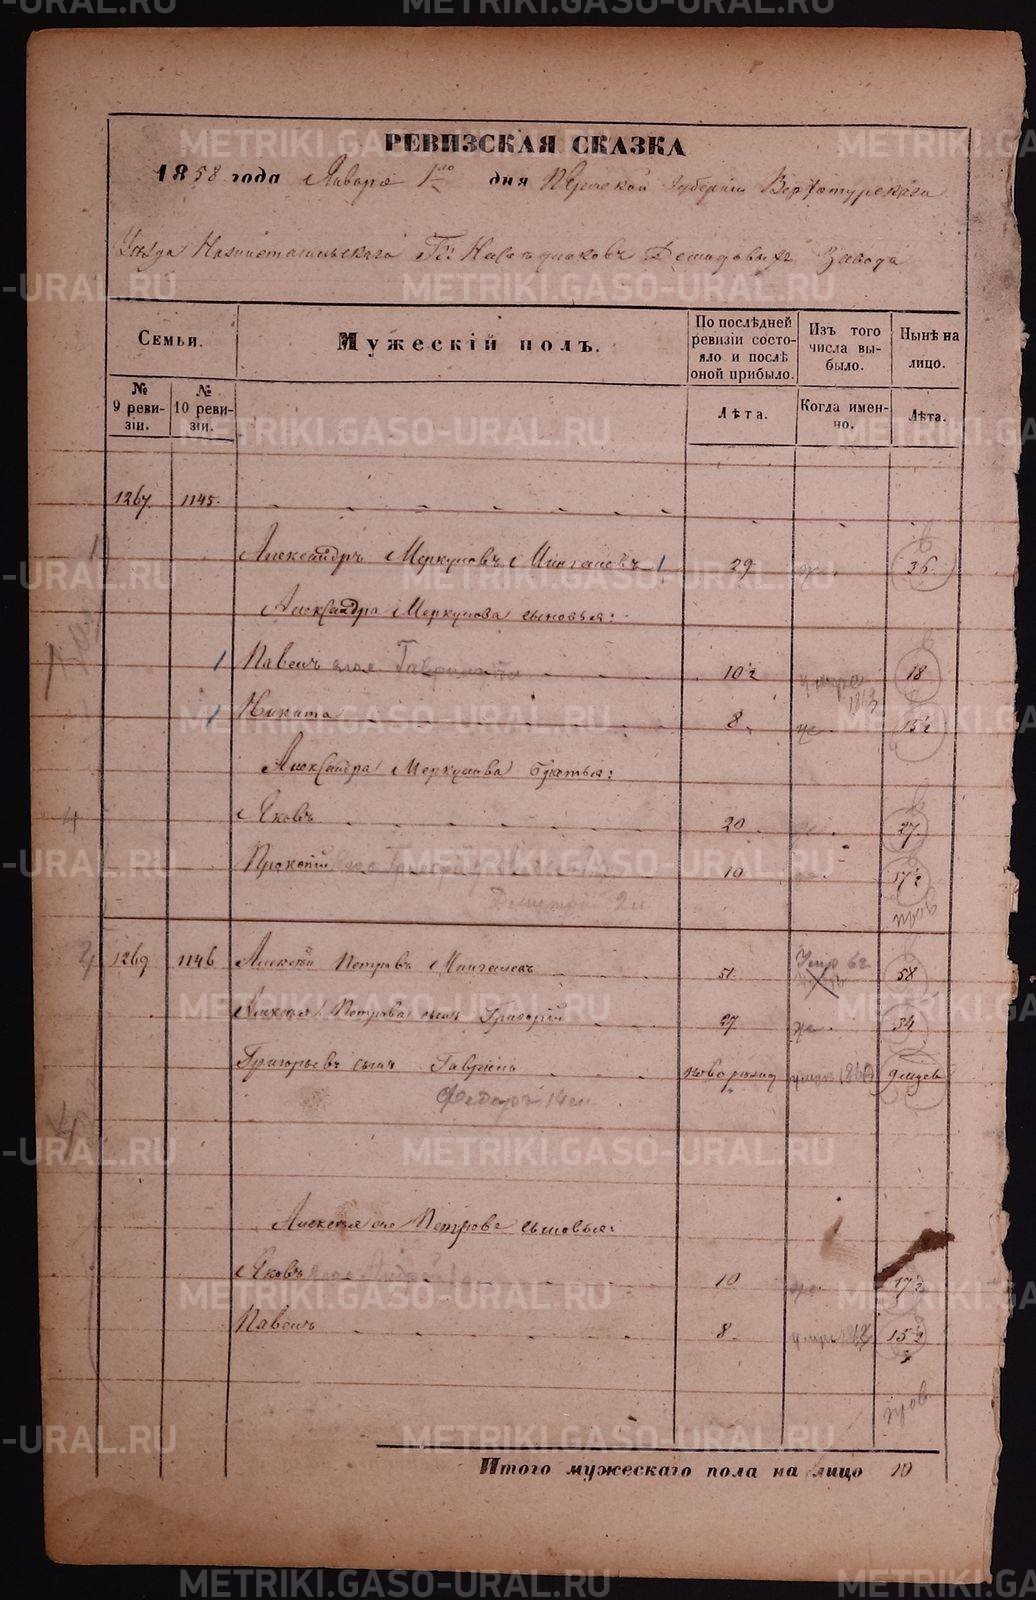 РЕВИЗСКАЯ СКАЗКА
1858 года Января 1го дня Пермской Губерніи Верхотурскаго
Уѣзда Нижнетагильскаго Гг: Наслѣдниковъ Демидовыхъ Завода
Семьи.
Мужескій полъ.
По послѣдней ревизіи состояло и послѣ оной прибыло.
Изъ того числа выбыло.
Нынѣ на лицо.
№ 9 ревизіи.
№ 10 ревизіи.
Лѣта.
Когда именно.
Лѣта.
1267. 1145.
Александръ Меркуловъ 1 29 36
Александра Меркулова сыновья:
1 Павелъ 10½ 1863 18
1 Никита 8 15½
Александра Меркулова братья:
4 Яковъ 20 27
Прокопій 10 17½
Дмитрій 2
1269 1146 Алексѣй Петровъ 51 Умр 62 58
Алексѣя Петрова сынъ Григорій 27 34
Григорьевъ сынъ Гаврило новорожд 9 мцев
Федоръ
Алексѣя Петрова сыновья:
Яковъ 10 17½
Павелъ 8 15½
Итого мужескаго пола на лицо 10
METRIKI.GASO-URAL.RU